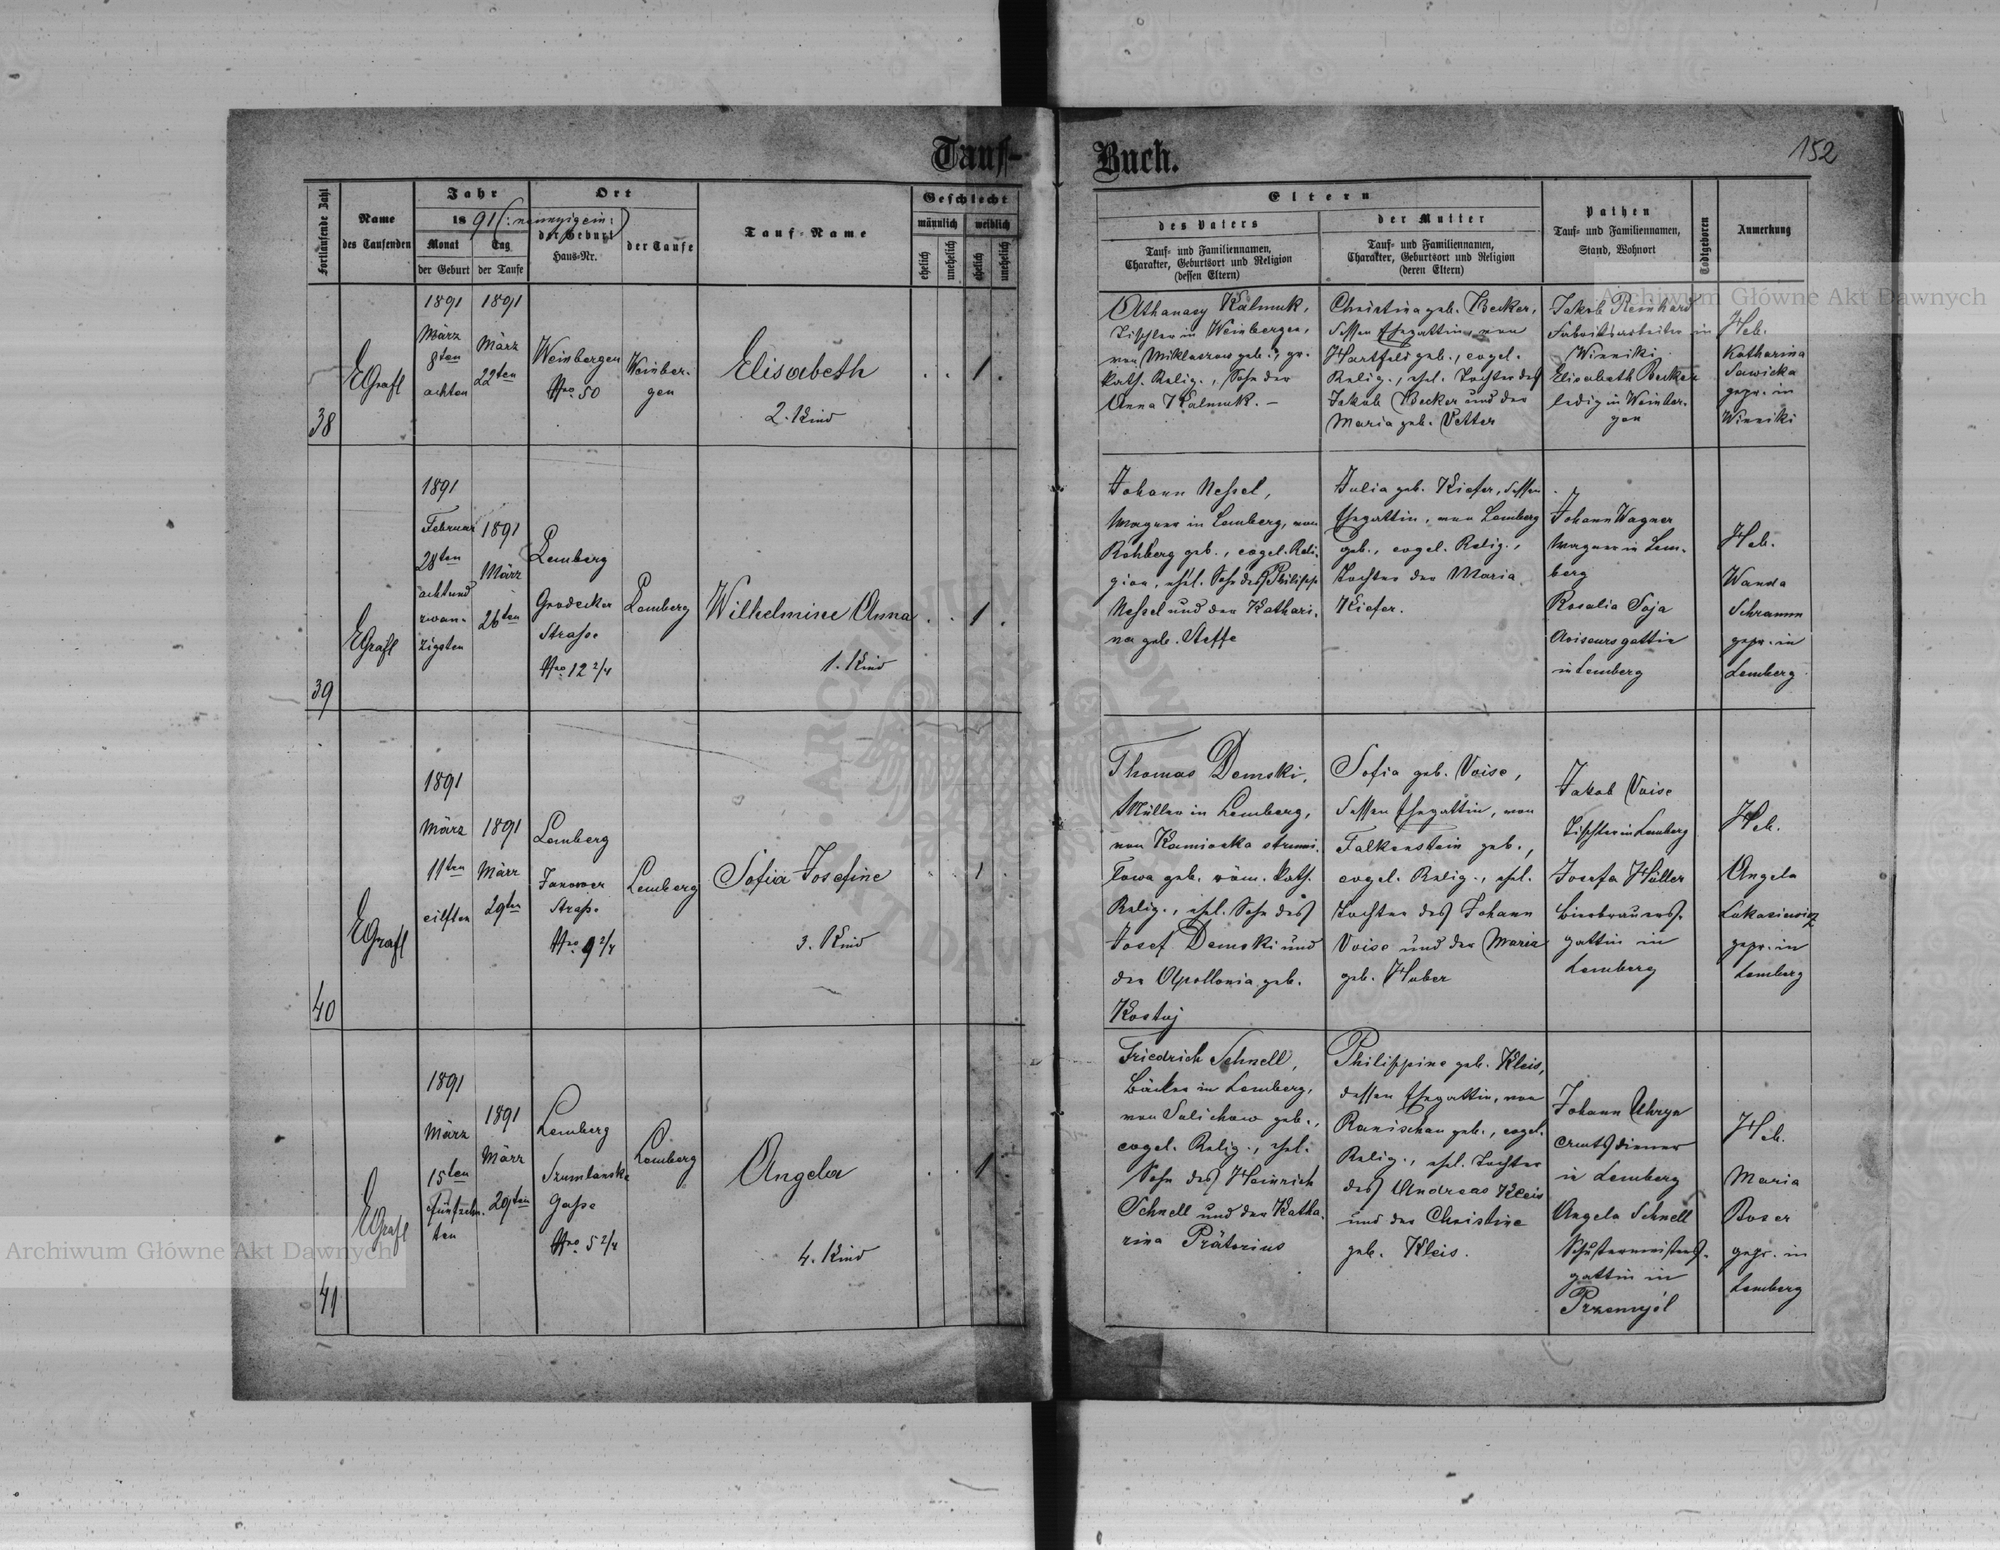 Tauf-
Buch.
152
Fortlaufende Zahl
Name
des Taufenden
Jahr
18 91 (: neunzigein :)
Monat
Tag
der Geburt
der Taufe
Ort
der Geburt
Haus-Nr.
der Taufe
Tauf-Name
Geschlecht
männlich
weiblich
ehelich
unehelich
ehelich
unehelich
Eltern
des Vaters
Tauf- und Familiennamen,
Charakter, Geburtsort und Religion
(dessen Eltern)
der Mutter
Tauf- und Familiennamen,
Charakter, Geburtsort und Religion
(deren Eltern)
Pathen
Tauf- und Familiennamen,
Stand, Wohnort
Todtgeboren
Anmerkung
38
EGrafl
1891
März
8ten
achten
1891
März
22ten
Weinbergen
Nro. 50
Weinber-
gen
Elisabeth
2. Kind
. . 1 .
Athanasy Kalmuk,
Tischler in Weinbergen,
von Miklaszow geb., gr.
kath. Relig., Sohn der
Anna Kalmuk. –
Christina geb. Becker,
dessen Ehegattin, von
Hartfeld geb., evgel.
Relig., ehel. Tochter des
Jakob Becker und der
Maria geb. Vetter
Jakob Reinhard
Fabriksarbeiter in
Winniki
Elisabeth Becker
ledig in Weinber-
gen
Heb.
Katharina
Sawicka
gepr. in
Winniki
39
EGrafl
1891
Februar
28ten
achtund
zwan-
zigsten
1891
März
26ten
Lemberg
Grodecker
Straße
Nro. 12 2/4
Lemberg
Wilhelmine Anna
1. Kind
. . 1 .
Johann Neßel,
Wagner in Lemberg, von
Rehberg geb., evgel. Reli-
gion, ehel. Sohn des Philipp
Neßel und der Kathari-
na geb. Steffe
Julia geb. Kiefer, dessen
Ehegattin, von Lemberg
geb., evgel. Relig.,
Tochter der Maria
Kiefer.
Johann Wagner
Wagner in Lem-
berg
Rosalia Soja
Aviseursgattin
in Lemberg
Heb.
Wanda
Schramm
gepr. in
Lemberg
40
EGrafl
1891
März
11ten
eilften
1891
März
29ten
Lemberg
Janower
Straße
Nro. 9 2/4
Lemberg
Sofia Josefine
3. Kind
. . 1 .
Thomas Demski,
Müller in Lemberg,
von Kamionka strumi-
lowa geb. röm. kath.
Relig., ehel. Sohn des
Josef Demski und
der Apollonia geb.
Kostuj
Sofia geb. Voise,
dessen Ehegattin, von
Falkenstein geb.,
evgel. Relig., ehel.
Tochter des Johann
Voise und der Maria
geb. Huber
Jakob Voise
Tischler in Lemberg
Josefa Hüller
Bierbrauers-
gattin in
Lemberg
Heb.
Angela
Lukasiewicz
gepr. in
Lemberg
41
EGrafl
1891
März
15ten
fünfzehn-
ten
1891
März
29ten
Lemberg
Szumlanski
Gasse
Nro. 5 2/4
Lemberg
Angela
4. Kind
. . 1
Friedrich Schnell,
Bäcker in Lemberg,
von Sulichow geb.,
evgel. Relig., ehel.
Sohn des Heinrich
Schnell und der Katha-
rina Prätorius
Philippine geb. Kleis,
dessen Ehegattin, von
Ranischau geb., evgel.
Relig., ehel. Tochter
des Andreas Kleis
und der Christine
geb. Kleis.
Johann Uhryn
Amtsdiener
in Lemberg
Angela Schnell
Schustermeisters-
gattin in
Przemyśl
Heb.
Maria
Boser
gepr. in
Lemberg
Archiwum Główne Akt Dawnych
Archiwum Główne Akt Dawnych